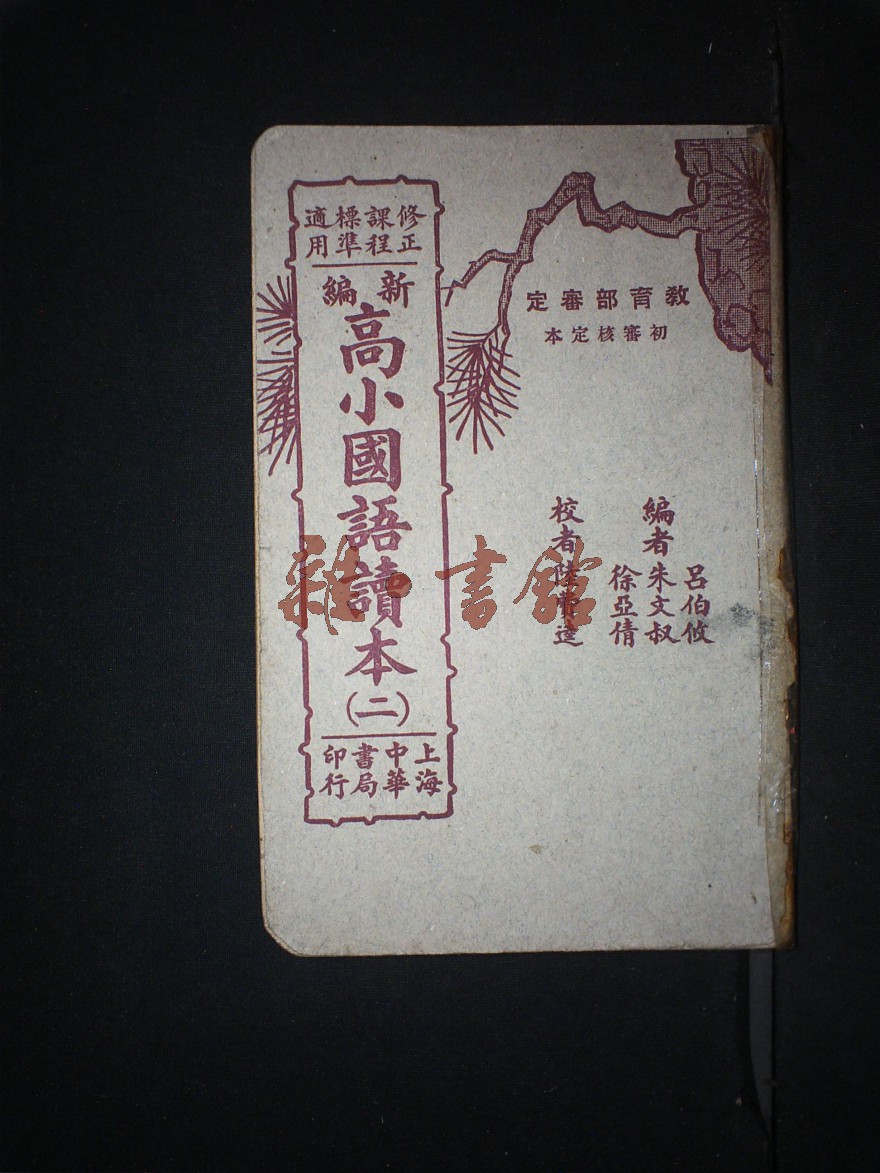 教育部審定
初審核定本
呂伯攸
編者朱文叔
徐亞倩
校者陸費逵
修正課程標準適用
新編
高小國語讀本(二)
上海中華書局印行
雜書館